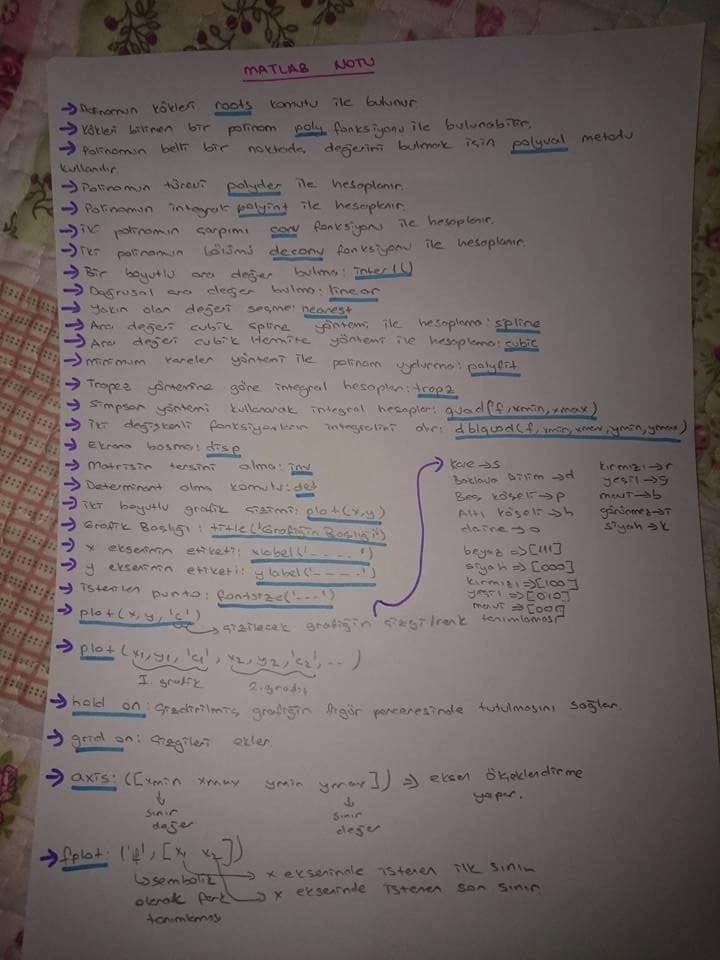 MATLAB NOTU
→ Polinomun kökleri roots komutu ile bulunur.
→ Kökleri bilinen bir polinom poly fonksiyonu ile bulunabilir.
→ Polinomun belli bir noktada değerini bulmak için polyval metodu
kullanılır.
→ Polinomun türevi polyder ile hesaplanır.
→ Polinomun integrali polyint ile hesaplanır.
→ İki polinomun çarpımı conv fonksiyonu ile hesaplanır.
→ İki polinomun bölümü deconv fonksiyonu ile hesaplanır.
→ Bir boyutlu ara değer bulma: inter1()
→ Doğrusal ara değer bulma: linear
→ Yakın olan değeri seçme: nearest
→ Ara değeri cubik spline yöntemi ile hesaplama: spline
→ Ara değeri cubik Hermite yöntemi ile hesaplama: cubic
→ Minimum kareler yöntemi ile polinom uydurma: polyfit
→ Tropez yöntemine göre integral hesaplar: trapz
→ Simpson yöntemi kullanarak integral hesaplar: quad(f,xmin,xmax)
→ İki değişkenli fonksiyonların integralini alır: dblquad(f,xmin,xmax,ymin,ymax)
→ Ekrana basma: disp
→ Matrisin tersini alma: inv
→ Determinant alma komutu: det
→ iki boyutlu grafik çizimi: plot(x,y)
→ Grafik Başlığı: title('Grafiğin Başlığı')
→ x ekseninin etiketi: xlabel('-----')
→ y ekseninin etiketi: ylabel('-----')
→ istenilen punto: fontsize('---')
→ plot(x,y,'c')
↳ çizilecek grafiğin çizgi/renk tanımlaması
kare → s
Baklava Dilim → d
Beş köşeli → p
Altı köşeli → h
daire → o
kırmızı → r
yeşil → g
mavi → b
görünmez → i
siyah → k
beyaz ⇒ [111]
siyah ⇒ [000]
kırmızı ⇒ [100]
yeşil ⇒ [010]
mavi ⇒ [001]
→ plot(x1,y1,'c1', x2,y2,'c2',...)
1. grafik 2. grafik
→ hold on: Çizdirilmiş grafiğin figür penceresinde tutulmasını sağlar.
→ grid on: Çizgileri ekler
→ axis: ([xmin xmax ymin ymax]) ⇒ eksen ölçeklendirme
yapar.
↓ sınır değer ↓ sınır değer
→ fplot: ('f', [x1 x2])
→ x ekseninde istenen ilk sınırı
→ x ekseninde istenen son sınırı
↳ sembolik
olarak fonk
tanımlaması